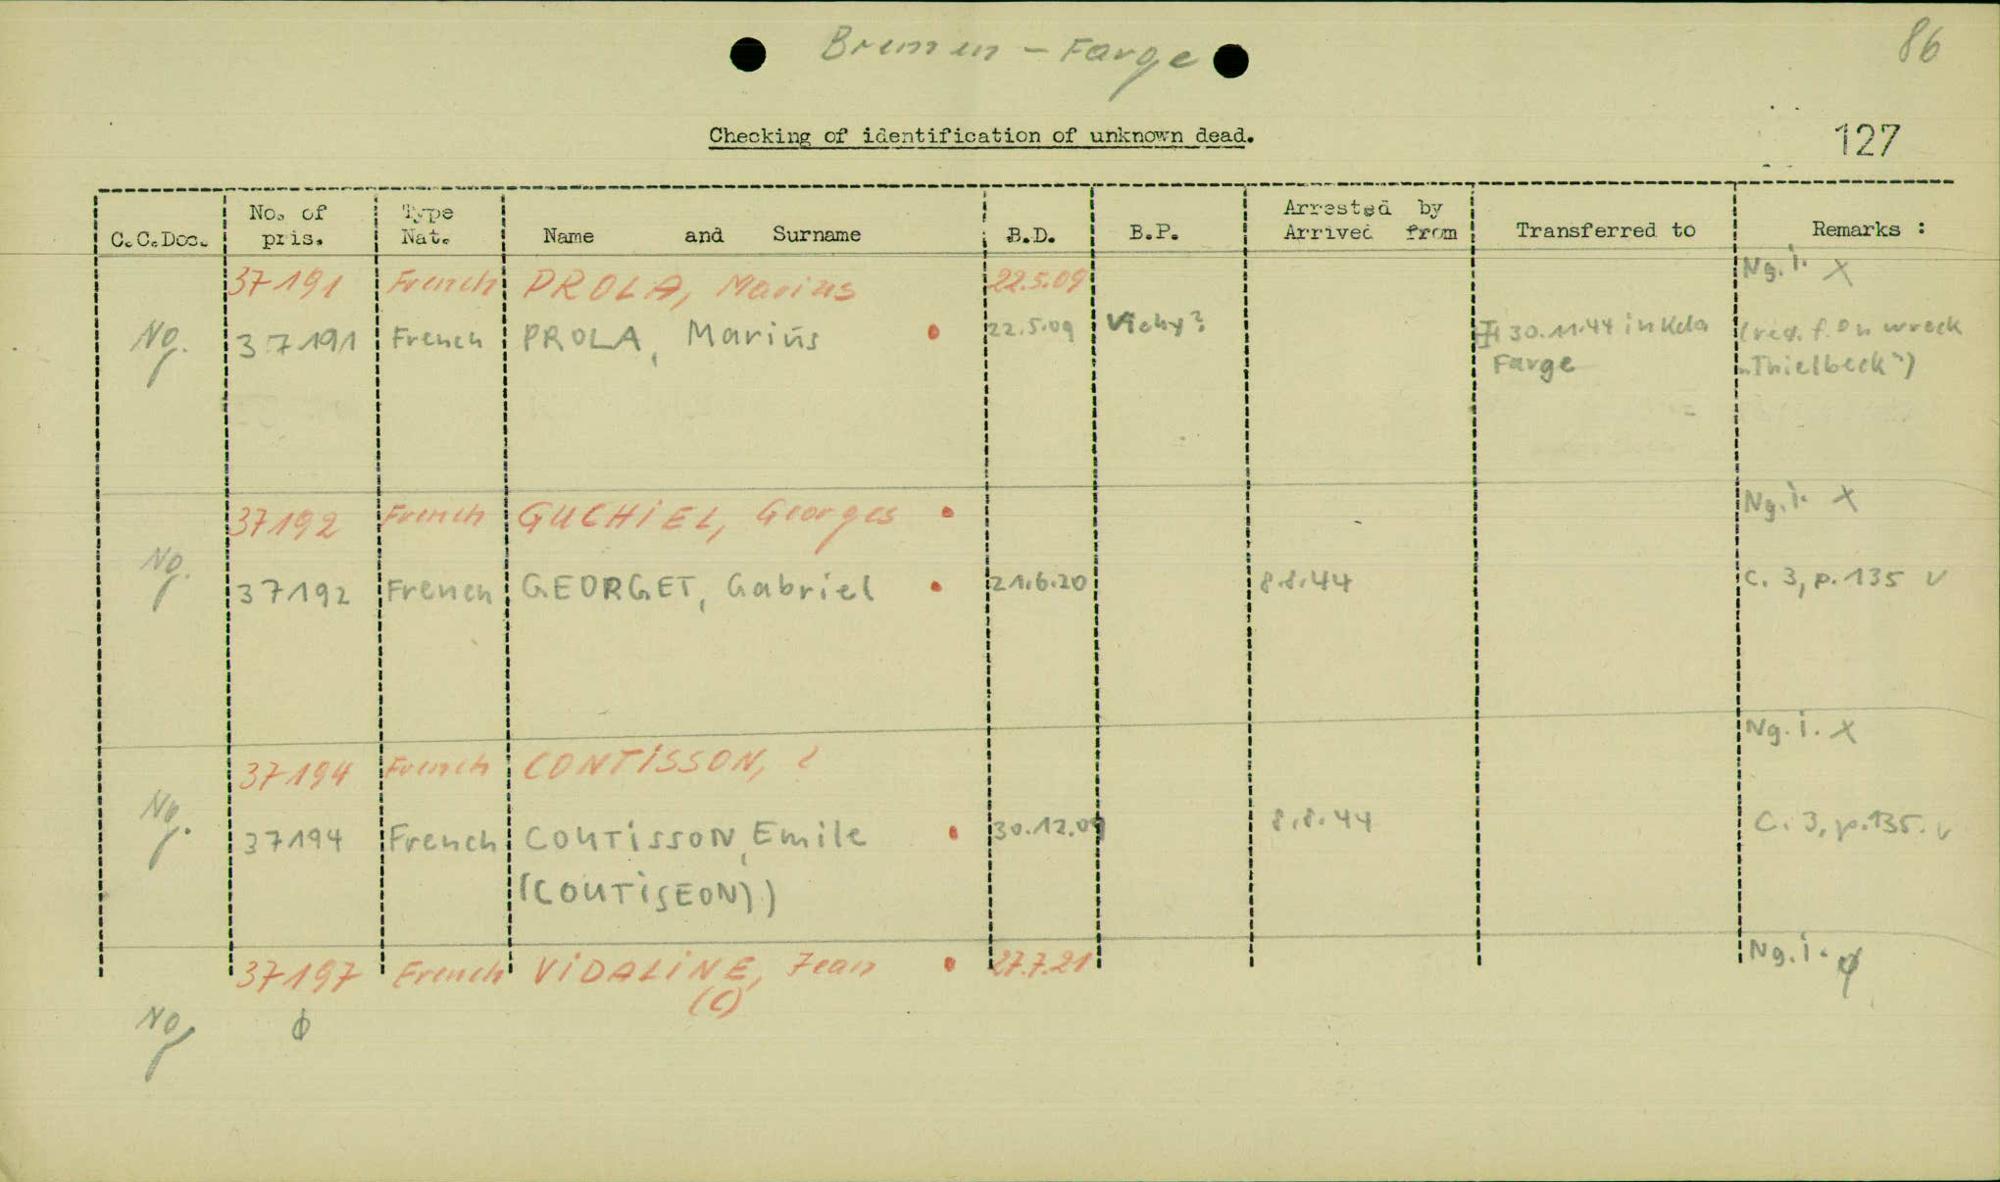 Bremen - Farge
86
Checking of identification of unknown dead.
127
C.C.Doc. No. of pris. Type Nat. Name and Surname B.D. B.P. Arrested by Arrived from Transferred to Remarks :
37191 French PROLA, Marius 22.5.09 Ng. i. X
Ng. 37191 French PROLA, Marius 22.5.09 Vichy? 30.11.44 in Kdo (reg. f. on wreck
Farge „Thielbeck")
37192 French GUCHIEL, Georges Ng. i. X
Ng. 37192 French GEORGET, Gabriel 21.6.20 8.8.44 C. 3, p. 135 v
37194 French CONTISSON, ? Ng. i. X
Ng. 37194 French COUTISSON, Emile 30.12.09 8.8.44 C. 3, p. 135. v
(COUTISEON))
37197 French VIDALINE, Jean 27.7.21 Ng. i. ϕ
(C)
Ng ϕ